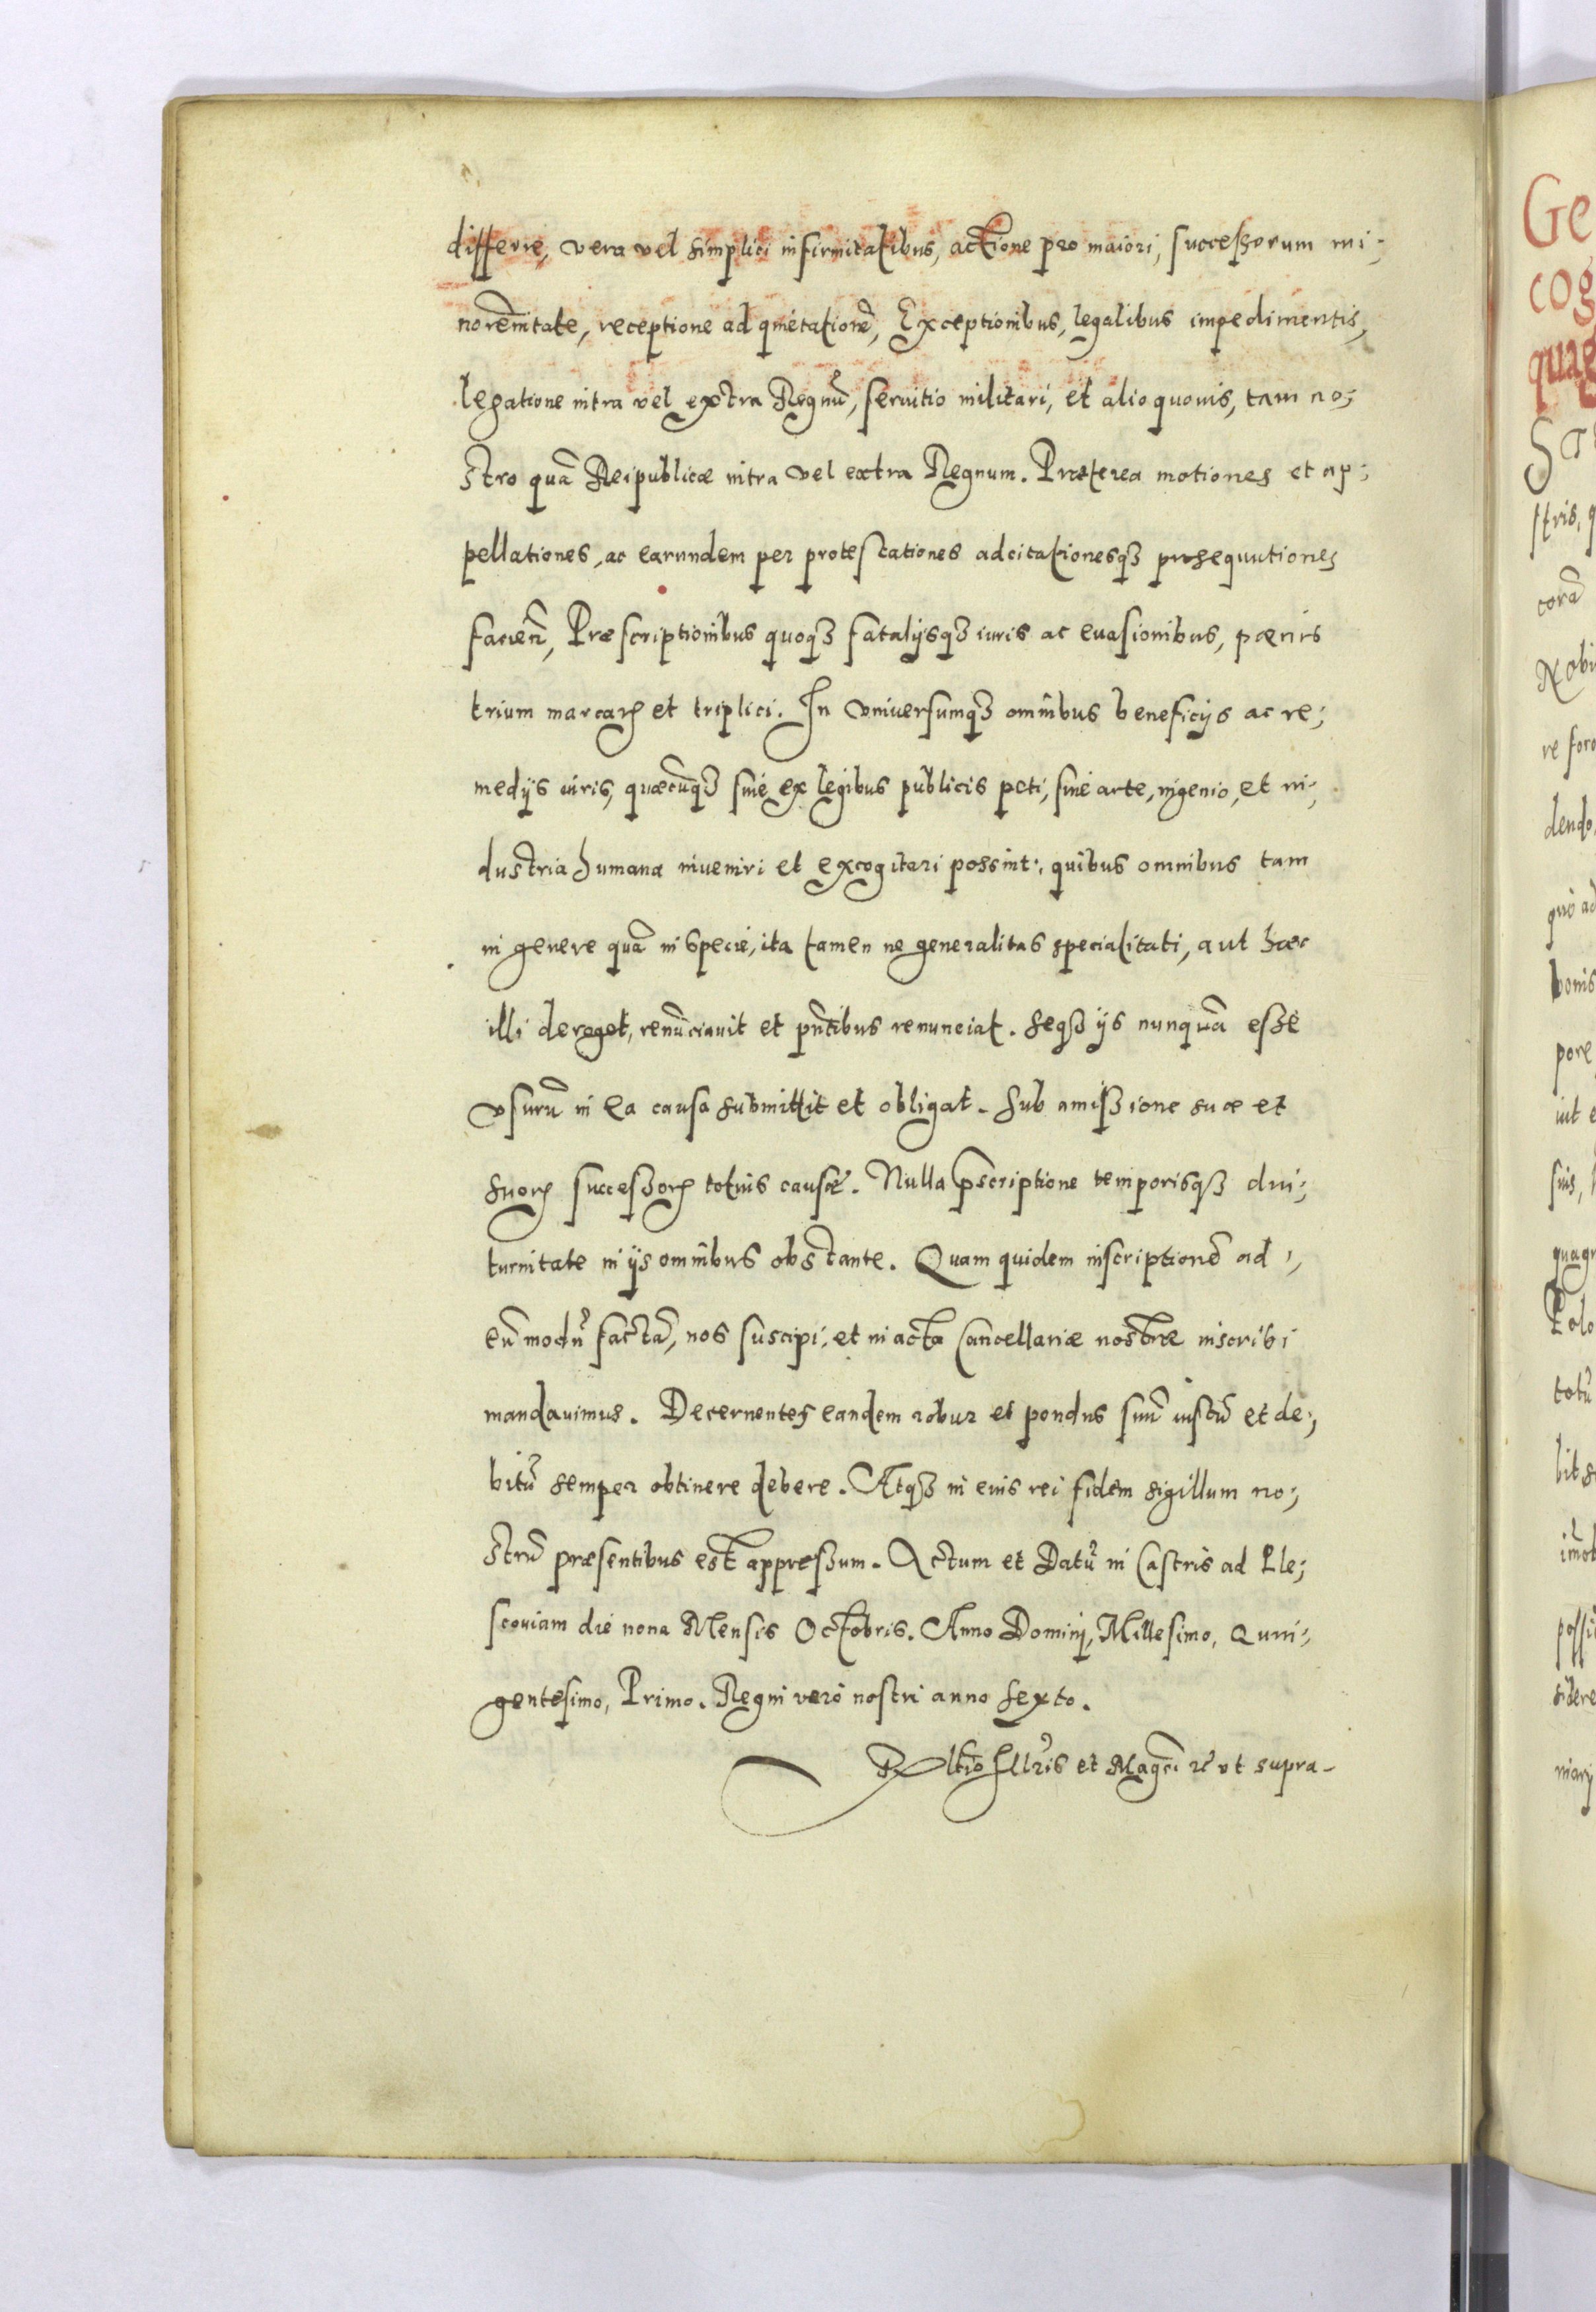 differre, vera vel simplici infirmitatibus, actione pro maiori, successorum mi;
norēnitate, receptione ad quietationē, Exceptionibus, legalibus impedimentis,
legatione intra vel extra Regnū, seruitio militari, et alio quouis, tam no;
stro quā Reipublicæ intra vel extra Regnum. Præterea motiones et ap;
pellationes, ac earundem per protestationes adcitationesqȝ prosequutiones
facien̄, Præscriptionibus quoqȝ fatalijsqȝ iuris ac euasionibus, pœnis
trium marcarꝝ et triplici. In vniuersumqȝ omnibus beneficijs ac re;
medijs iuris, quæcūqȝ siue ex legibus publicis peti, siue arte, ingenio, et in;
dustria humana inueniri et excogitari possint: quibus omnibus tam
in genere quā in specie, ita tamen ne generalitas specialitati, aut hæc
illi deroget, renūciauit et pn̄tibus renunciat. Seqȝ ijs nunquā esse
vsurū in ea causa submittit et obligat. Sub amissione suæ et
suorꝝ successorꝝ totius causæ. Nulla p̄scriptione temporisqȝ diu;
turnitate in ijs omnibus obstante. Quam quidem inscriptionē ad
eū modū factā, nos suscipi, et in acta Cancellariæ nostræ inscribi
mandauimus. Decernentes eandem robur et pondus suū iustū et de;
bitū semper obtinere debere. Atqȝ in eius rei fidem sigillum no;
strū præsentibus est appressum. Actum et Datū in Castris ad Ple;
scouiam die nona Mensis Octobris. Anno Domini, Millesimo, Quin;
gentesimo, Primo. Regni vero nostri anno Sexto.
Rl̄tio Ill̄ris et Magci rē vt supra
Ge
cog
quag
stris, q
corā
Nobi
re foro
dendo
quo ad
bonis
pore
iut e
suis,
quagr
Polo
totū
bit s
im̄ob
possi
sidere
niarij